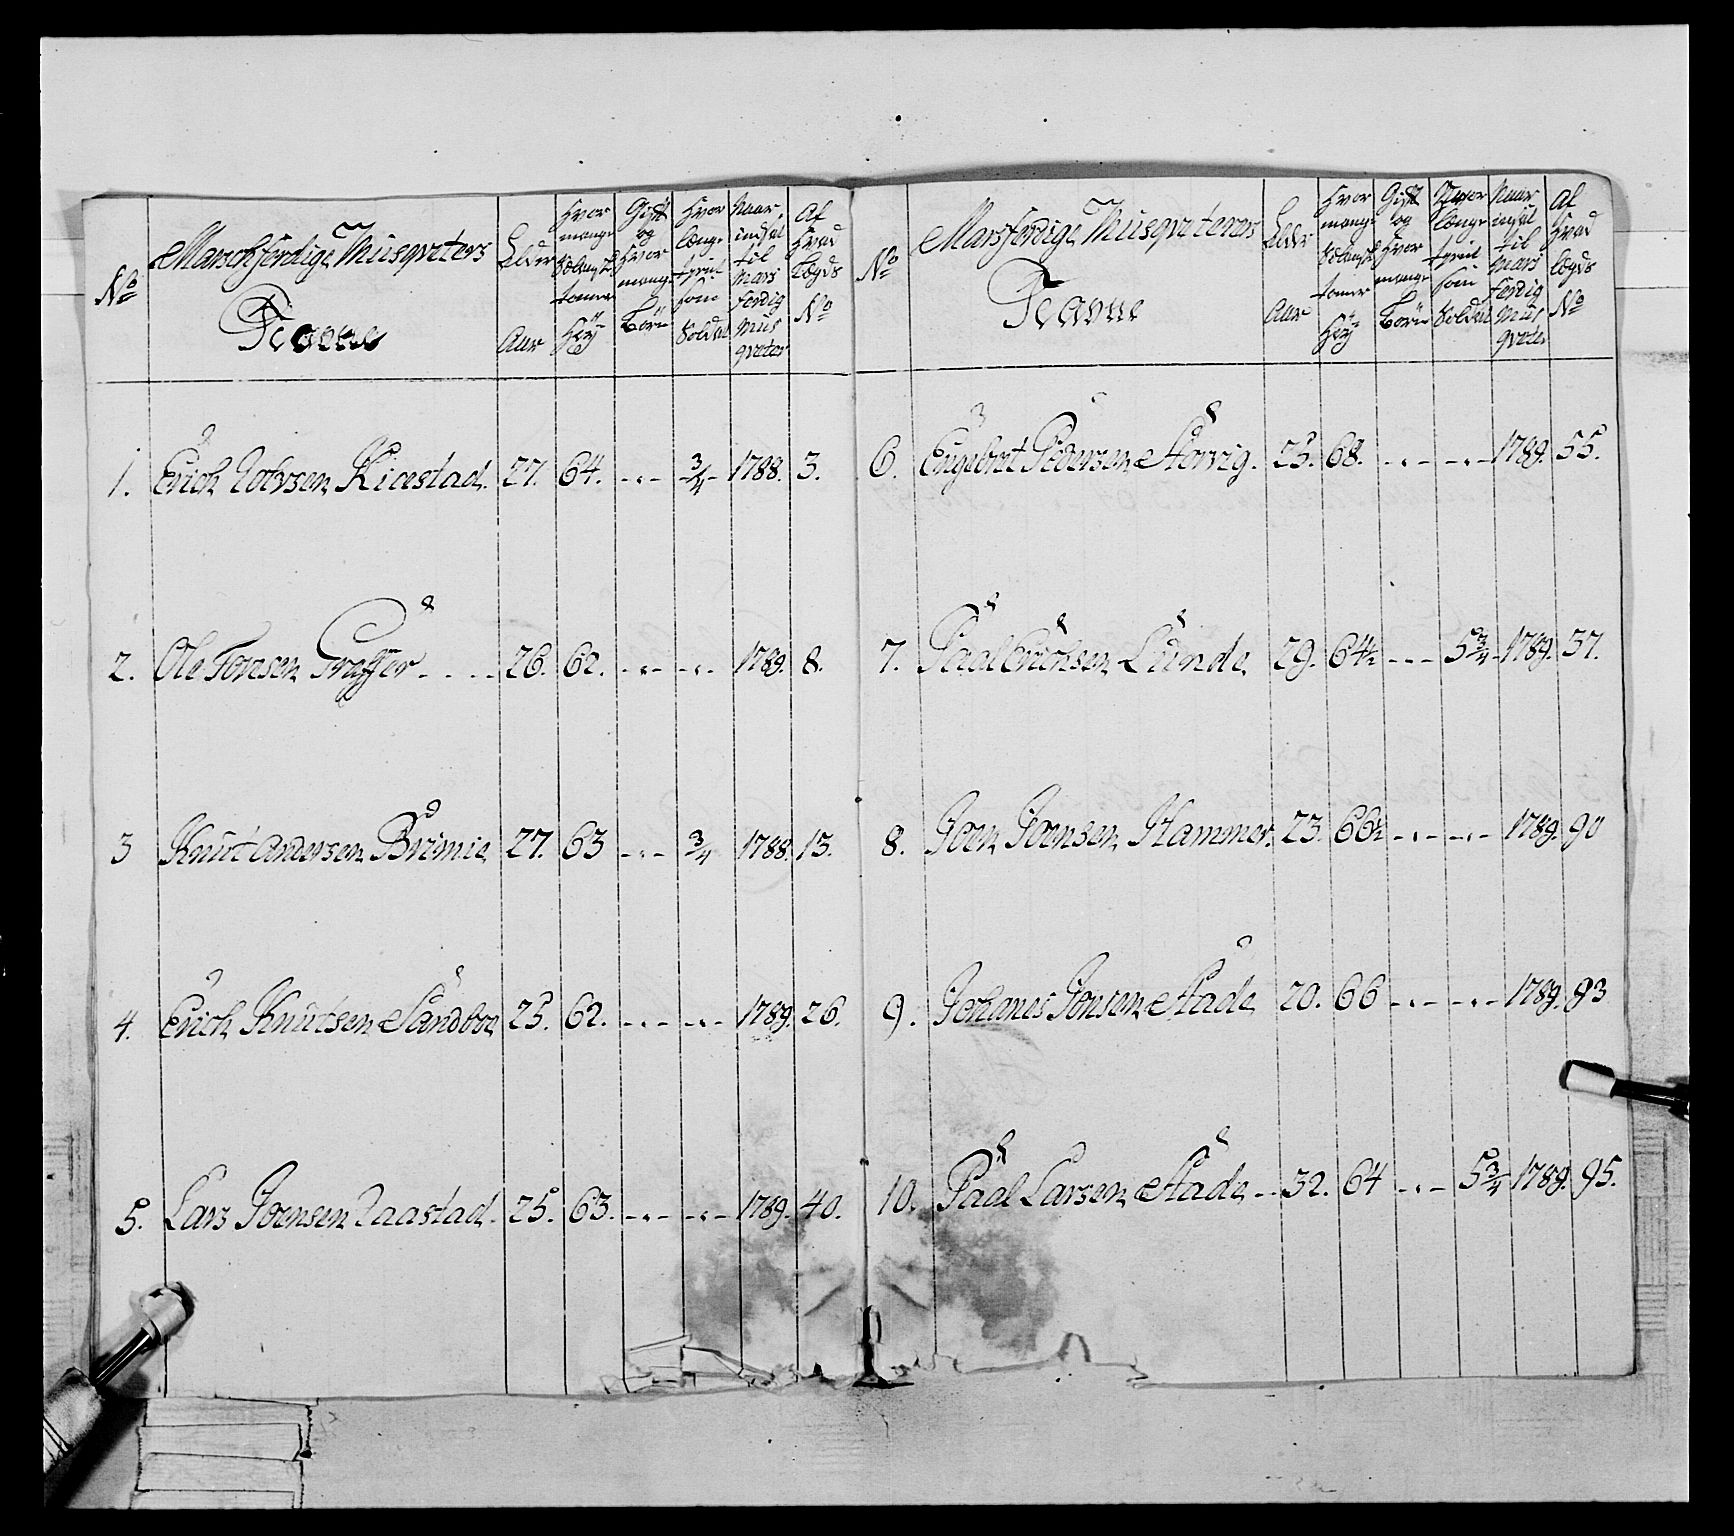 No
Marschferdige Musqveters
Navne
Elder
Aar
Hvor
mange
tomer
Høy
Gift
og
Hvor
mange
Børn
Hvor
længe
tjent
som
Soldat
Naar
indsat
til
Mars
ferdig
Mus
qveter
Af
Hvad
Lægds
No
1. Erich Kiæstad. 27. 64. - - - 3/4 1788. 3.
2. Ole Torsen Graffer . . . . 26. 62. - - - - - 1789. 8.
3 Knut Andersen Brimie 27. 63 - - - 3/4 1788. 13.
4. Erich Knutsen Sandboe 25. 62. - - - - - - 1789. 26.
5. Lars Joensen Aaastad. 25. 63. - - - - - - 1789. 40.
No
Marsferdige Musqveterers
Navne
Elder
Aar
Hvor
mange
tomer
Høy
Gift
og
Hvor
mange
Børn
Hvor
længe
tjent
som
Soldat
Naar
indsat
til
Mars
ferdig
Mus
qveter
Af
Hvad
Lægds
No
6. Engebret Pedersen Storvig. 25. 68. - - - - - - 1789. 55.
7. Paal Erichsen Lunde 29. 64½ - - - 5 3/4 1789. 57.
8. Joen Joensen Hammer. 23. 66½ - - - - - - 1789. 90
9. Johanes Jonsen Stade 20. 66 - - - - - - 1789. 93
10. Paal Larsen Stade - - 32. 64 - - - 5 3/4 1789. 95.